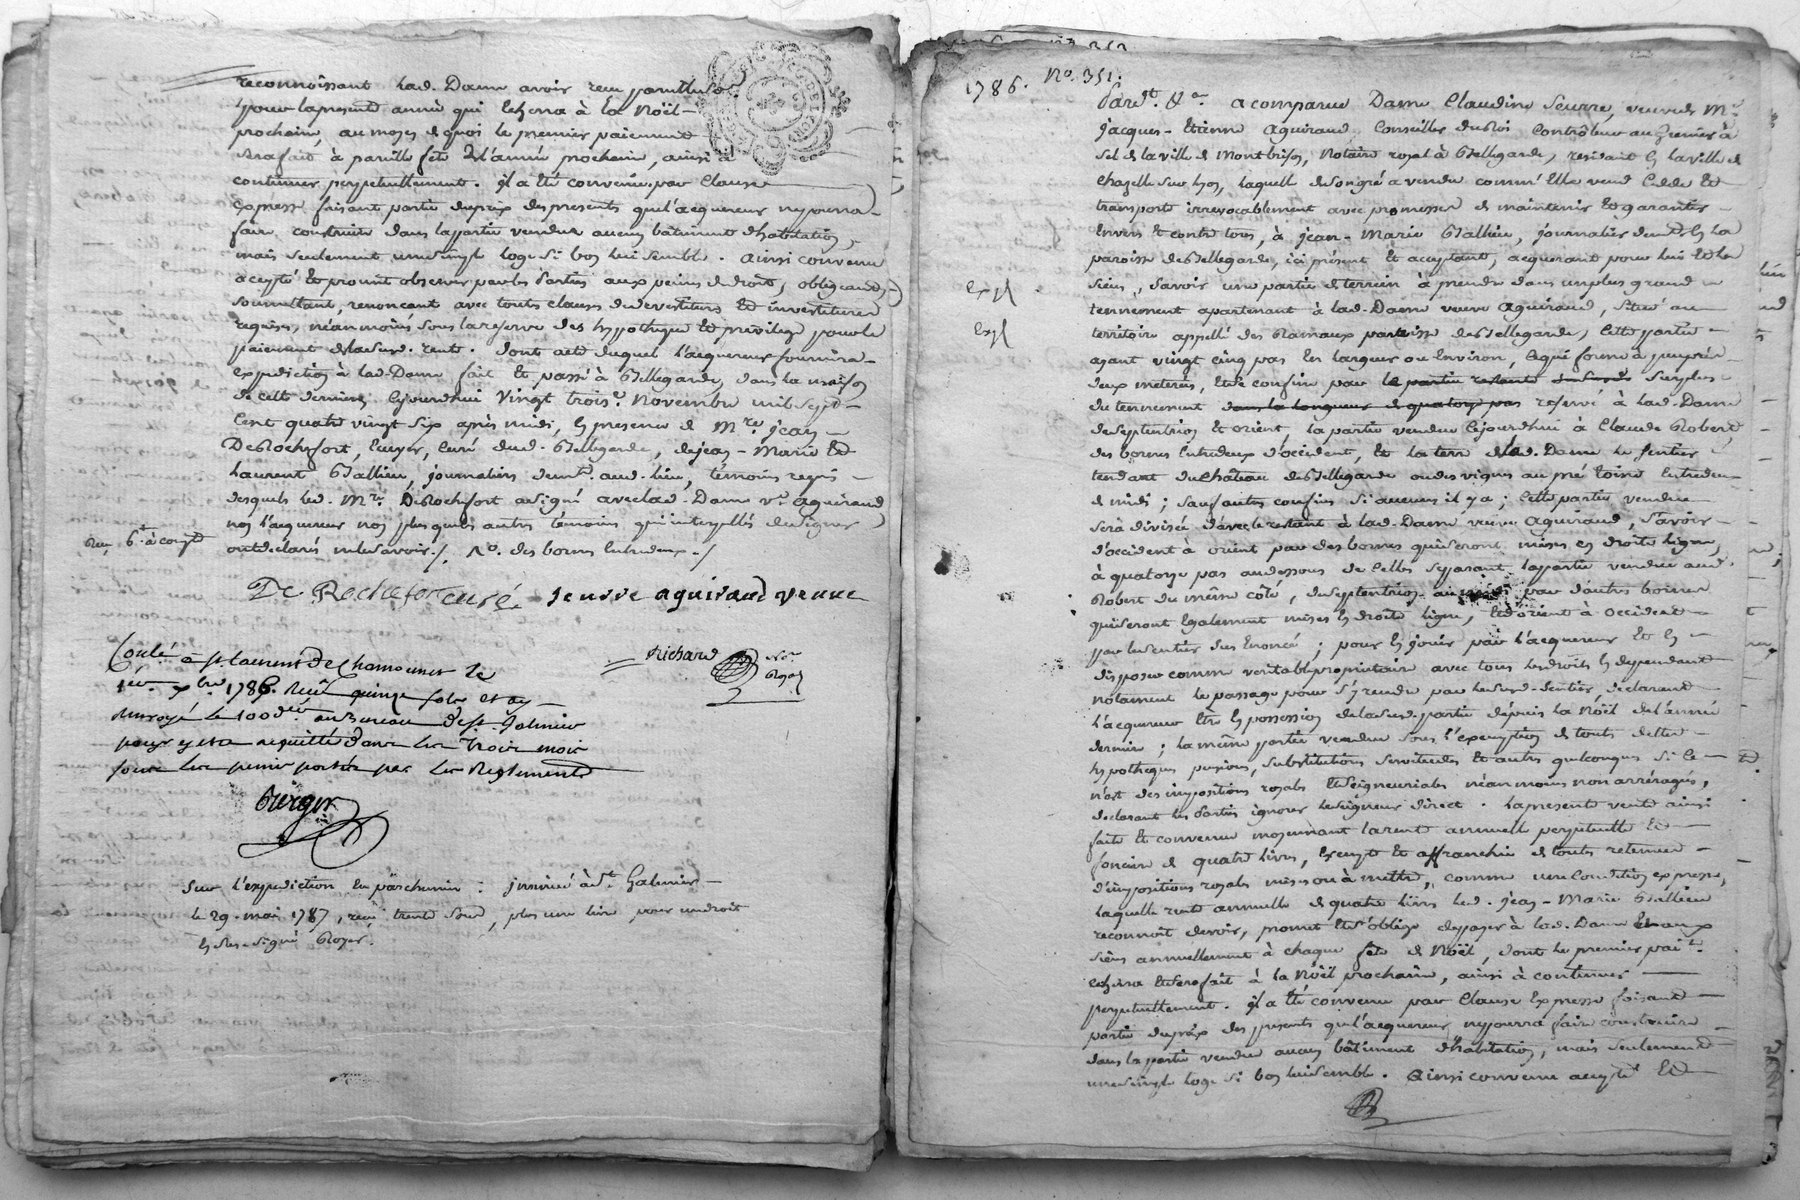 reconnoissant lad. Dame avoir reçu pareille so.
pour la presente année qui echerra à la Noël
prochaine, au moyen de quoi le premier paiement
sera fait à pareille fête de l'année prochaine, ainsi à
continuer perpetuellement. il a été convenu par clause
expresse faisant partie du prix des presents que l'acquereur ny pourra
faire construire dans la partie vendue aucun bâtiment d'habitation,
mais seulement une simple loge si bon lui semble. ainsi convenu
accepté et promit observer par les Parties aux peines de droit, obligeant,
soumettant, renonçant avec toutes clauses de devestiture et investiture
requises, néanmoins sous la reserve des hypotheque et privilege pour le
paiement de lasusd. rente. dont acte duquel l'acquereur fournira
expedition à lad. Dame fait et passé à Bellegarde, dans la maison
de cette derniere, cejourdhui vingt trois.e Novembre mil sept
cent quatre vingt six après midi, en presence de Mre. jean
DeRochefort, Ecuyer, curé dud. Bellegarde, de jean-Marie et
Laurent Ballieu, journaliers demt. aud. lieu, témoins requis
desquels led. Mre. DeRochefort a signé avec lad. Dame ve. aguiraud
non l'acquereur non plus que les autres témoins qui interpellés de signer
ont declaré ne le savoir./. Ro. des bornes entredeux./
Reçu 6.# à compte
De Rochefort curé. seurre aguiraud veuve
Richard Nre.
Royal
Conlé à st. laurent de Chamousset le
1er. xbre 1786. Reçu quinze sols et ay
renvoyé le 100e. den. au Bureau de st. Galmier
pour y etre acquitté dans les trois mois
sous les peines portées par les Reglements
Burger
Sur l'expedition en parchemin: insinué à St. Galmier
le 29. mai 1787, reçu trente sous, plus une livre pour undroit
signé Royer.
1786. No. 351.
Pardt. &a. a comparu Dame Claudine Seurre, veuve de Mre.
jacques-Etienne aguiraud Conseiller du Roi Contrôleur au Grenier à
Sel de la ville de Montbrison, Notaire royal à Bellegarde, residant en la ville de
Chazelle sur lyon, laquelle de son gré a vendu comm'elle vend cede et
transporte irrevocablement avec promesse de maintenir et garantir
envers et contre tous, à jean-Marie Ballieu, journalier demt. en la
paroisse de Bellegarde, ici présent et acceptant, acquerant pour lui et les
siens, savoir une partie de terrein à prendre dans un plus grand
tennement apartenant à lad. Dame veuve aguiraud, situé au
territoire appellé des Rameaux paroisse de Bellegarde, cette partie
ayant vingt cinq pas en largeur ou environ, ce qui forme à peuprès
deux meterées, et se confine par la partie restante surplus
du tennement dans la longueur de quatorze pas reservé à lad. Dame
de septentrion et orient la partie vendue cejourdhui à Claude Robert,
des bornes entredeux d'occident, et la terre de lad. Dame le sentier
tendant du château de Bellegarde au pré entredeux
de midi; sauf autres confins si aucuns il y a; cette partie vendue
sera divisée d'avec le restant à lad. Dame veuve aguiraud, savoir
d'occident à orient par des bornes qui seront mises en droite ligne,
à quatorze pas au dessous de celles separant la partie vendue aud.
Robert du même côté, de septentrion par d'autres bornes
qui seront egalement mises en droite ligne, et d'orient à occident
par le sentier sus enoncé; pour en jouir par l'acquereur et en
disposer comme veritable proprietaire avec tous les droits en dependant
notament le passage pour s'y rendre par le susd. sentier, declarant
l'acquereur etre en possession de lasusd. partie depuis la Noël de l'année
derniere; la même partie vendue sous l'exemption de toute dette
hypotheques pensions, substitutions servitudes et autres quelconques si ce
n'est des impositions royales et seigneuriales néanmoins non arréragés,
declarant les Parties ignorer le seigneur direct. la presente vente ainsi
faite et convenue moyennant la rente annuelle perpetuelle et
fonciere de quatre livres, exempte et affranchie de toutes retenues
d'impositions royales mises ou à mettre, comme une condition expresse,
laquelle rente annuelle de quatre livres led. jean-Marie Ballieu
reconnoit devoir, promet et s'oblige de payer à lad. Dame et aux
siens annuellement à chaque fête de Noël, dont le premier pait.
echerra et sera fait à la Noël prochaine, ainsi à continuer
perpetuellement. il a été convenu par clause expresse faisant
partie du prix des presents que l'acquereur ny pourra faire construire
dans la partie vendue aucun bâtiment d'habitation, mais seulement
une simple loge si bon lui semble. ainsi convenu accepté et
expl
expl